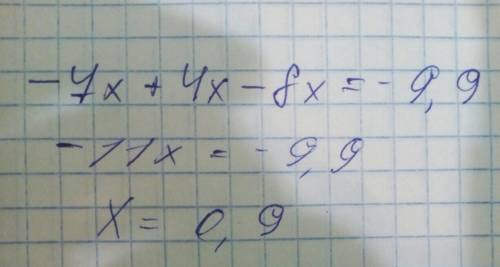 -7x + 4x - 8x = - 9,9
-11x = - 9,9
X = 0,9